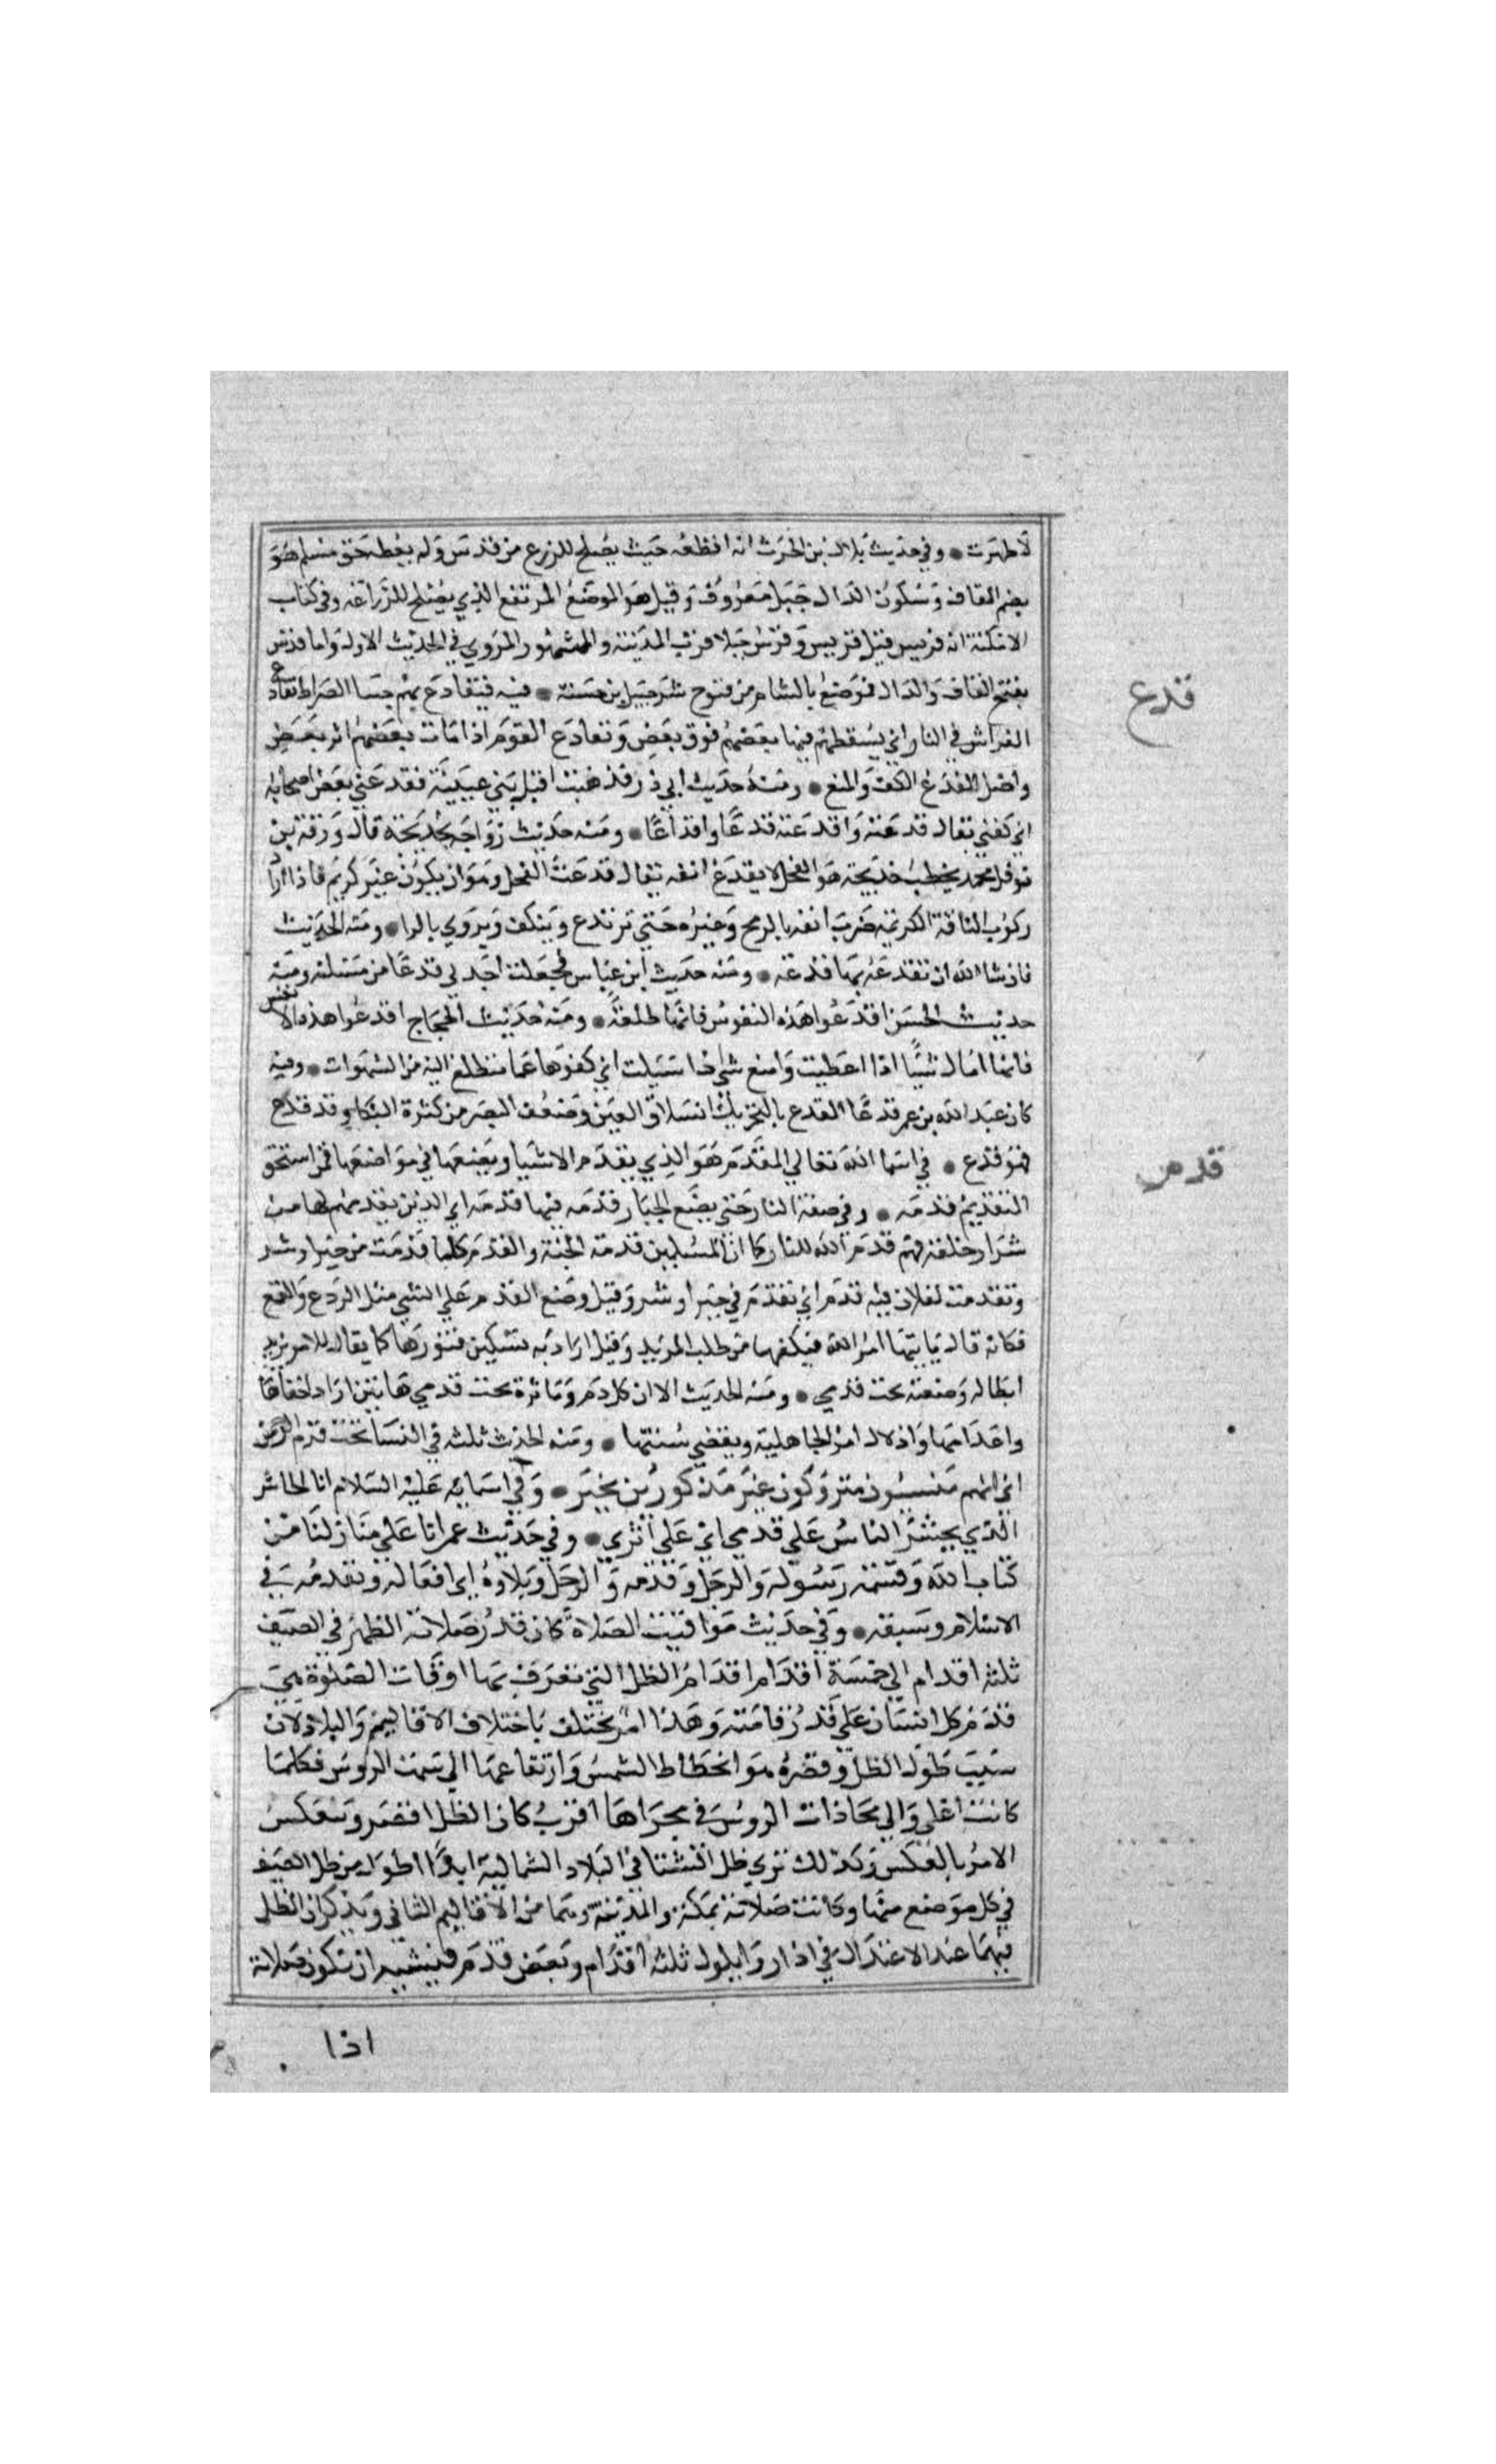 لا طهرت • وفي حديث بلال بن الحرث انه اقطعه حيث يصلح للزرع من قدس ولم يعطه حق مسلم هو
بضم القاف وسكون الدال جبل معروف وقيل هو الموضع المرتفع الذي يصلح للزراعة وفي كتاب
الامكنة انه قريس قيل قريس وقرس جبلا قرب المدينة والمشهور المروي في الحديث الاول واما قدس
بفتح القاف والدال فموضع بالشام من فتوح شرحبيل بن حسنة • فيه فيتقادع بهم جنبتا الصراط تقادع
قدع
الفراش في النار اي يسقطهم فيها بعضهم فوق بعض وتقادع القوم اذا مات بعضهم اثر بعض
واصل القدع الكف والمنع • ومنه حديث ابي ذر فذهبت اقبل بين عينيه فقدعني بعض اصحابه
اي كفني يقال قدعته واقدعته قدعا واقداعا • ومنه حديث زواجه بخديجة قال ورقة بن
نوفل محمد يخطب خديجة هو الفحل لا يقدع انفه يقال قدعت الفحل وهو ان يكون غير كريم فاذا اراد
ركوب الناقة الكريمة ضرب انفه بالرمح وغيره حتي ترتدع وينكف ويروي بالرا • ومنه الحديث
فان شا الله ان تقدعه بها قدعه • ومنه حديث ابن عباس فجعلت اجد لي قدعا من مسئلته ومنه
حديث الحسن اقدعوا هذه النفوس فانها طلعة • ومنه حديث الحجاج اقدعوا هذه الانفس
فانها اسال شيئا اذا اعطيت وامنع شي اذا سئلت اي كفوها عما تتطلع اليه من الشهوات • وفيه
كان عبد الله بن عمر قدعا القدع بالتحريك انسلاق العين وضعف البصر من كثرة البكا وقد قدع
فهو قدع • في اسما الله تعالي المقدم هو الذي يقدم الاشيا ويضعها في مواضعها فمن استحق
قدم
التقديم قدمه • وفي صفة النار حتي يضع الجبار قدمه فيها قدمه اي الذين يقدمهم لها من
شرار خلقه فهم قدم الله للنار كما ان المسلمين قدمه الجنة والقدم كلما قدمت من خير او شر
وتقدمت لفلان فيه قدم اي تقدم في خير او شر وقيل وضع القدم علي الشي مثل الردع والقمع
فكانه قال ياتيها امر الله فيكفها من طلب المزيد وقيل اراد به تسكين فورتها كما يقال للامر تريد
ابطاله وضعته تحت قدمي • ومنه الحديث الا ان كل دم وماثرة تحت قدمي هاتين اراد اخفاها
واعدامها واذلال امر الجاهلية ونقض سنتها • ومنه الحديث ثلثه في النسا تحت قدم الرحمن
اي انهم منسيون متروكون غير مذكورين بخير • وفي اسمايه عليه السلام انا الحاشر
الذي يحشر الناس علي قدمي اي علي اثري • وفي حديث عمر انا علي منازلنا من
كتاب الله وقسمة رسوله والرجل وقدمه والرجل وبلاوه اي افعاله وتقدمه في
الاسلام وسبقه • وفي حديث مواقيت الصلاة كان قدر صلاته الظهر في الصيف
ثلثه اقدام الي خمسة اقدام اقدام الظل التي تعرف بها اوقات الصلوة هي
قدم كل انسان علي قدر قامته وهذا امر يختلف باختلاف الاقاليم والبلاد لان
سبب طول الظل وقصره هو انحطاط الشمس وارتفاعها الي سمت الروس فكلما
كانت اعلي والي محاذات الروس في مجراها اقرب كان الظل اقصر وينعكس
الامر بالعكس وكذلك تري ظل الشتا في البلاد الشمالية ابدا اطول من ظل الصيف
في كل موضع منها وكانت صلاته بمكة والمدينة وهما من الاقاليم الثاني ويذكر ان الظل
فيهما عند الاعتدال في اذار وايلول ثلثه اقدام وبعض قدم فيشبه ان تكون صلاته
اذا